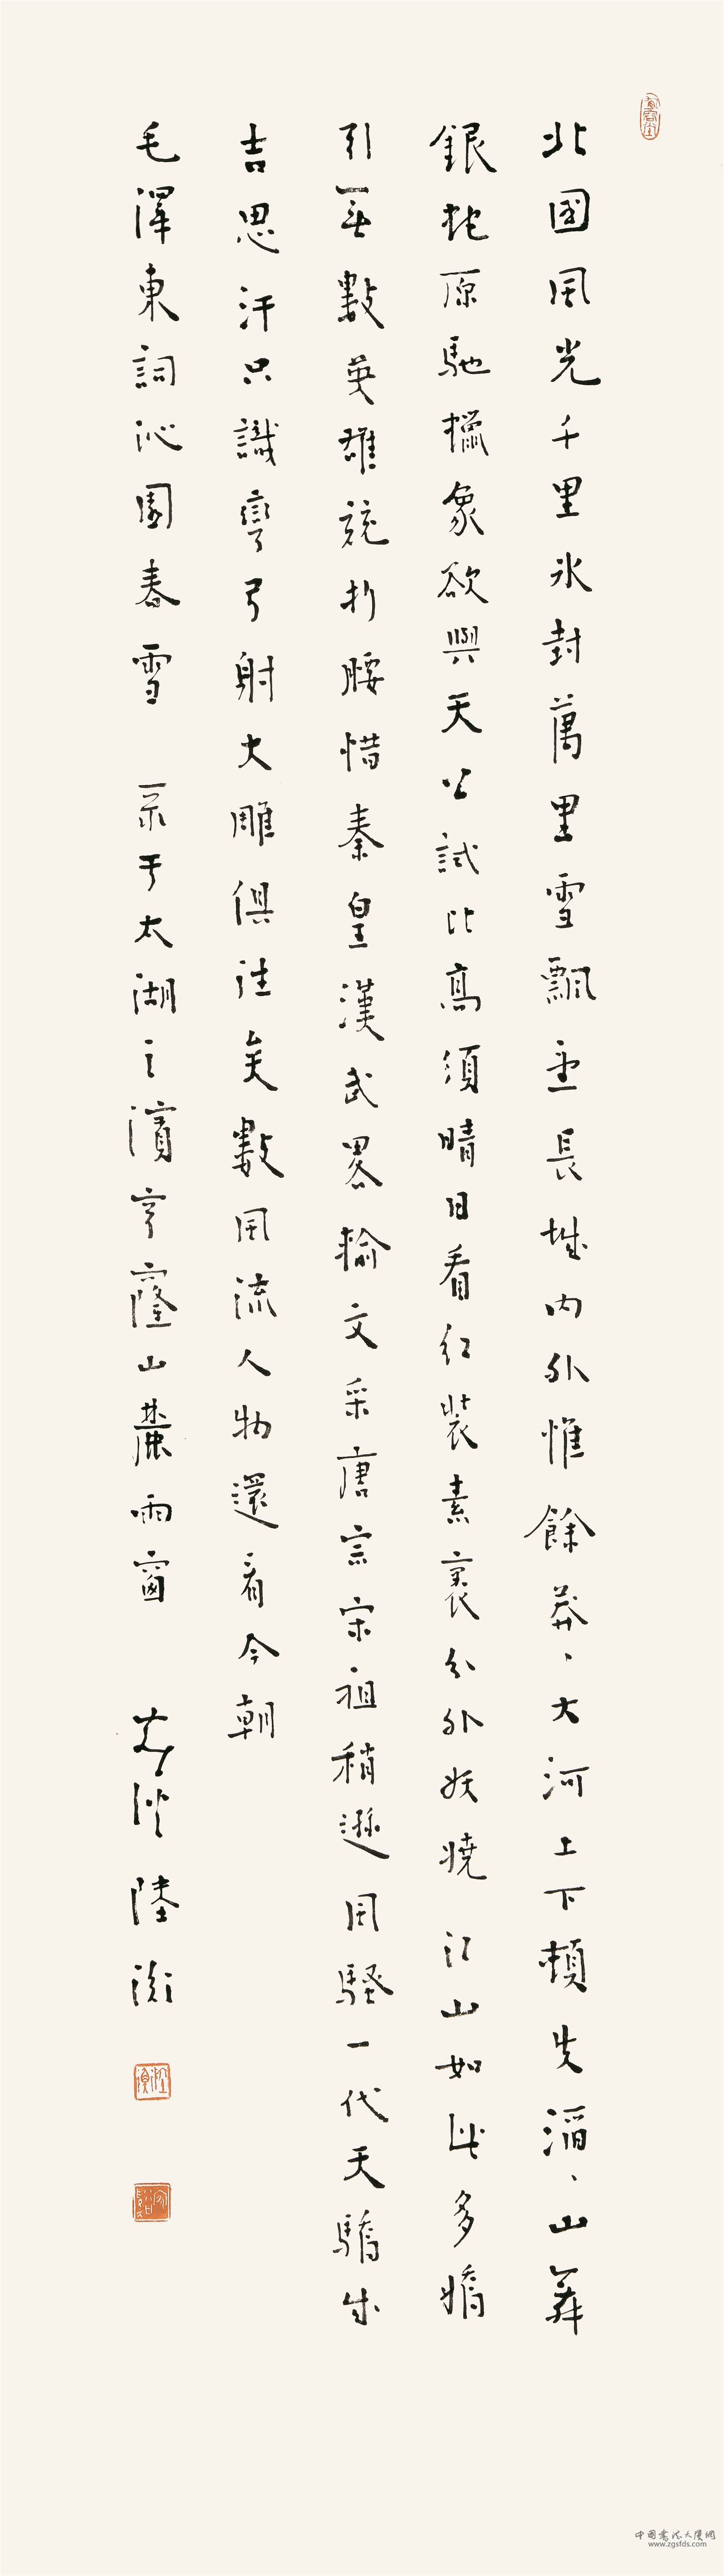 北國風光千里冰封萬里雪飄望長城內外惟餘莽、大河上下頓失滔、山舞
銀蛇原馳蠟象欲與天公試比高須晴日看紅裝素裹分外妖嬈 江山如此多嬌
引無數英雄競折腰惜秦皇漢武畧輸文采唐宗宋祖稍遜風騷一代天驕成
吉思汗只識彎弓射大雕俱往矣數風流人物還看今朝
毛澤東詞沁園春雪 于太湖之濱穹窿山麓雨窗 陸
中国書法大廈網
www.zgsfds.com